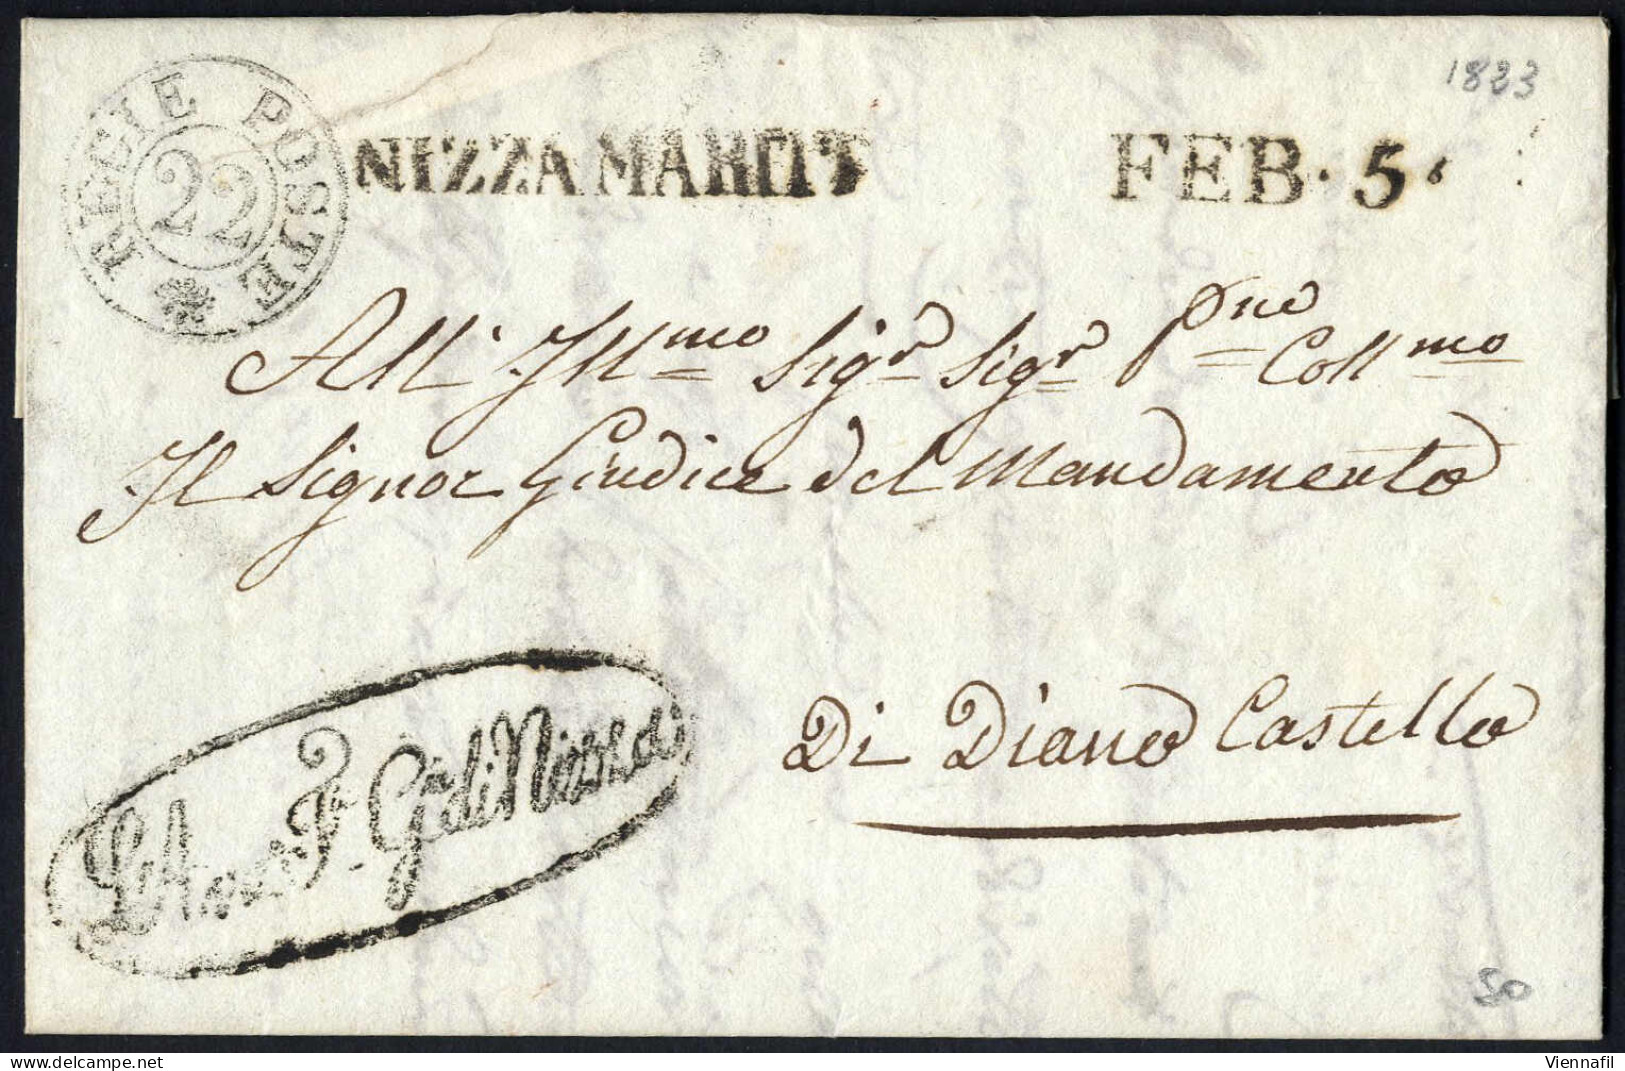 1833
REGIE POSTE
22
NIZZA MARITT
FEB. 5.
All' Illmo Sigr Sigr Pne Collmo
Il Signor Giudice del Mandamento
Di Diano Castello
L'Avv. F. Gle di Nizza
50
Viennafil